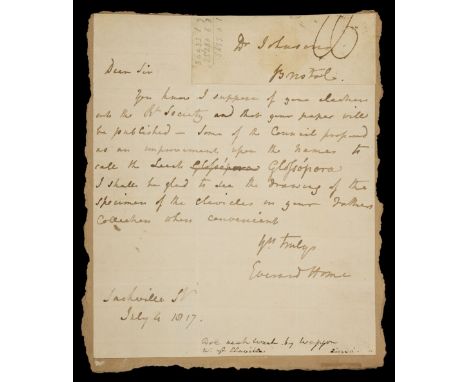 Dr Johnson
Bristol.
Dear Sir
You know I suppose of your election
into the Rl Society and that your paper will
be published – Some of the Council proposed
as an improvement upon the names to
call the Leech Glossopora Glossopora
I shall be glad to see the drawing of the
specimen of the clavicles in your Fathers
Collection when convenient
Yrs truly
Everard Home
Sackville St
July 4 1817.
next week by Waggon